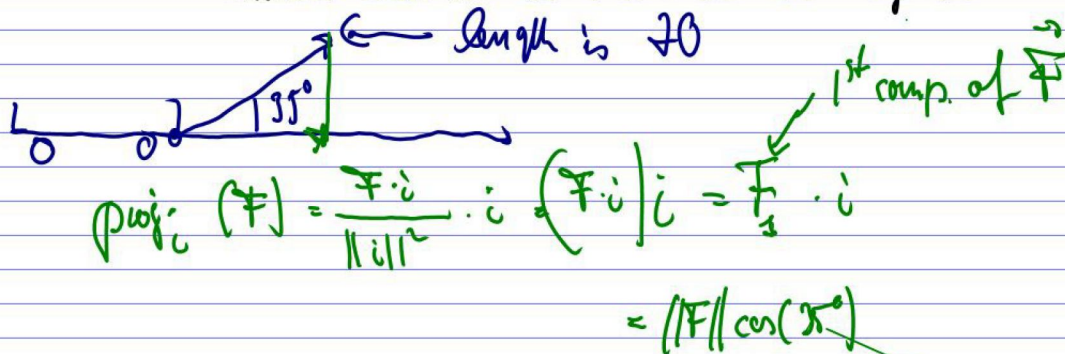 length is 70
35°
1st comp. of F⃗
proj_i (F) = F·i / ||i||² · i = (F·i) i = F₁ · i
= ||F|| cos(35°)